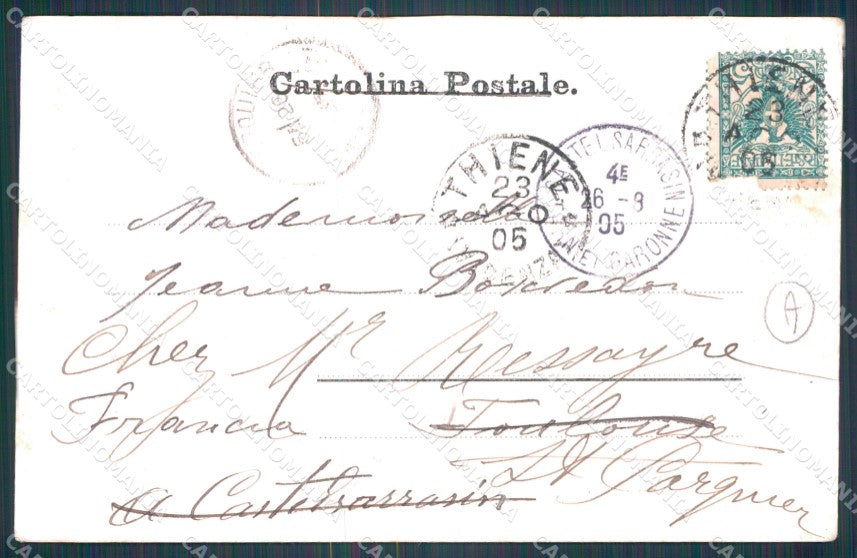 Cartolina Postale.
THIENE
23
AGO
05
VICENZA
CASTELSARRASIN
4E
26 - 8
05
TARN ET GARONNE
23
05
Mademoiselle
Jeanne
Chez Mr Messayre
Francia Toulouse
St Jorgnier
a Castelsarrasin
A
CARTOLINOMANIA